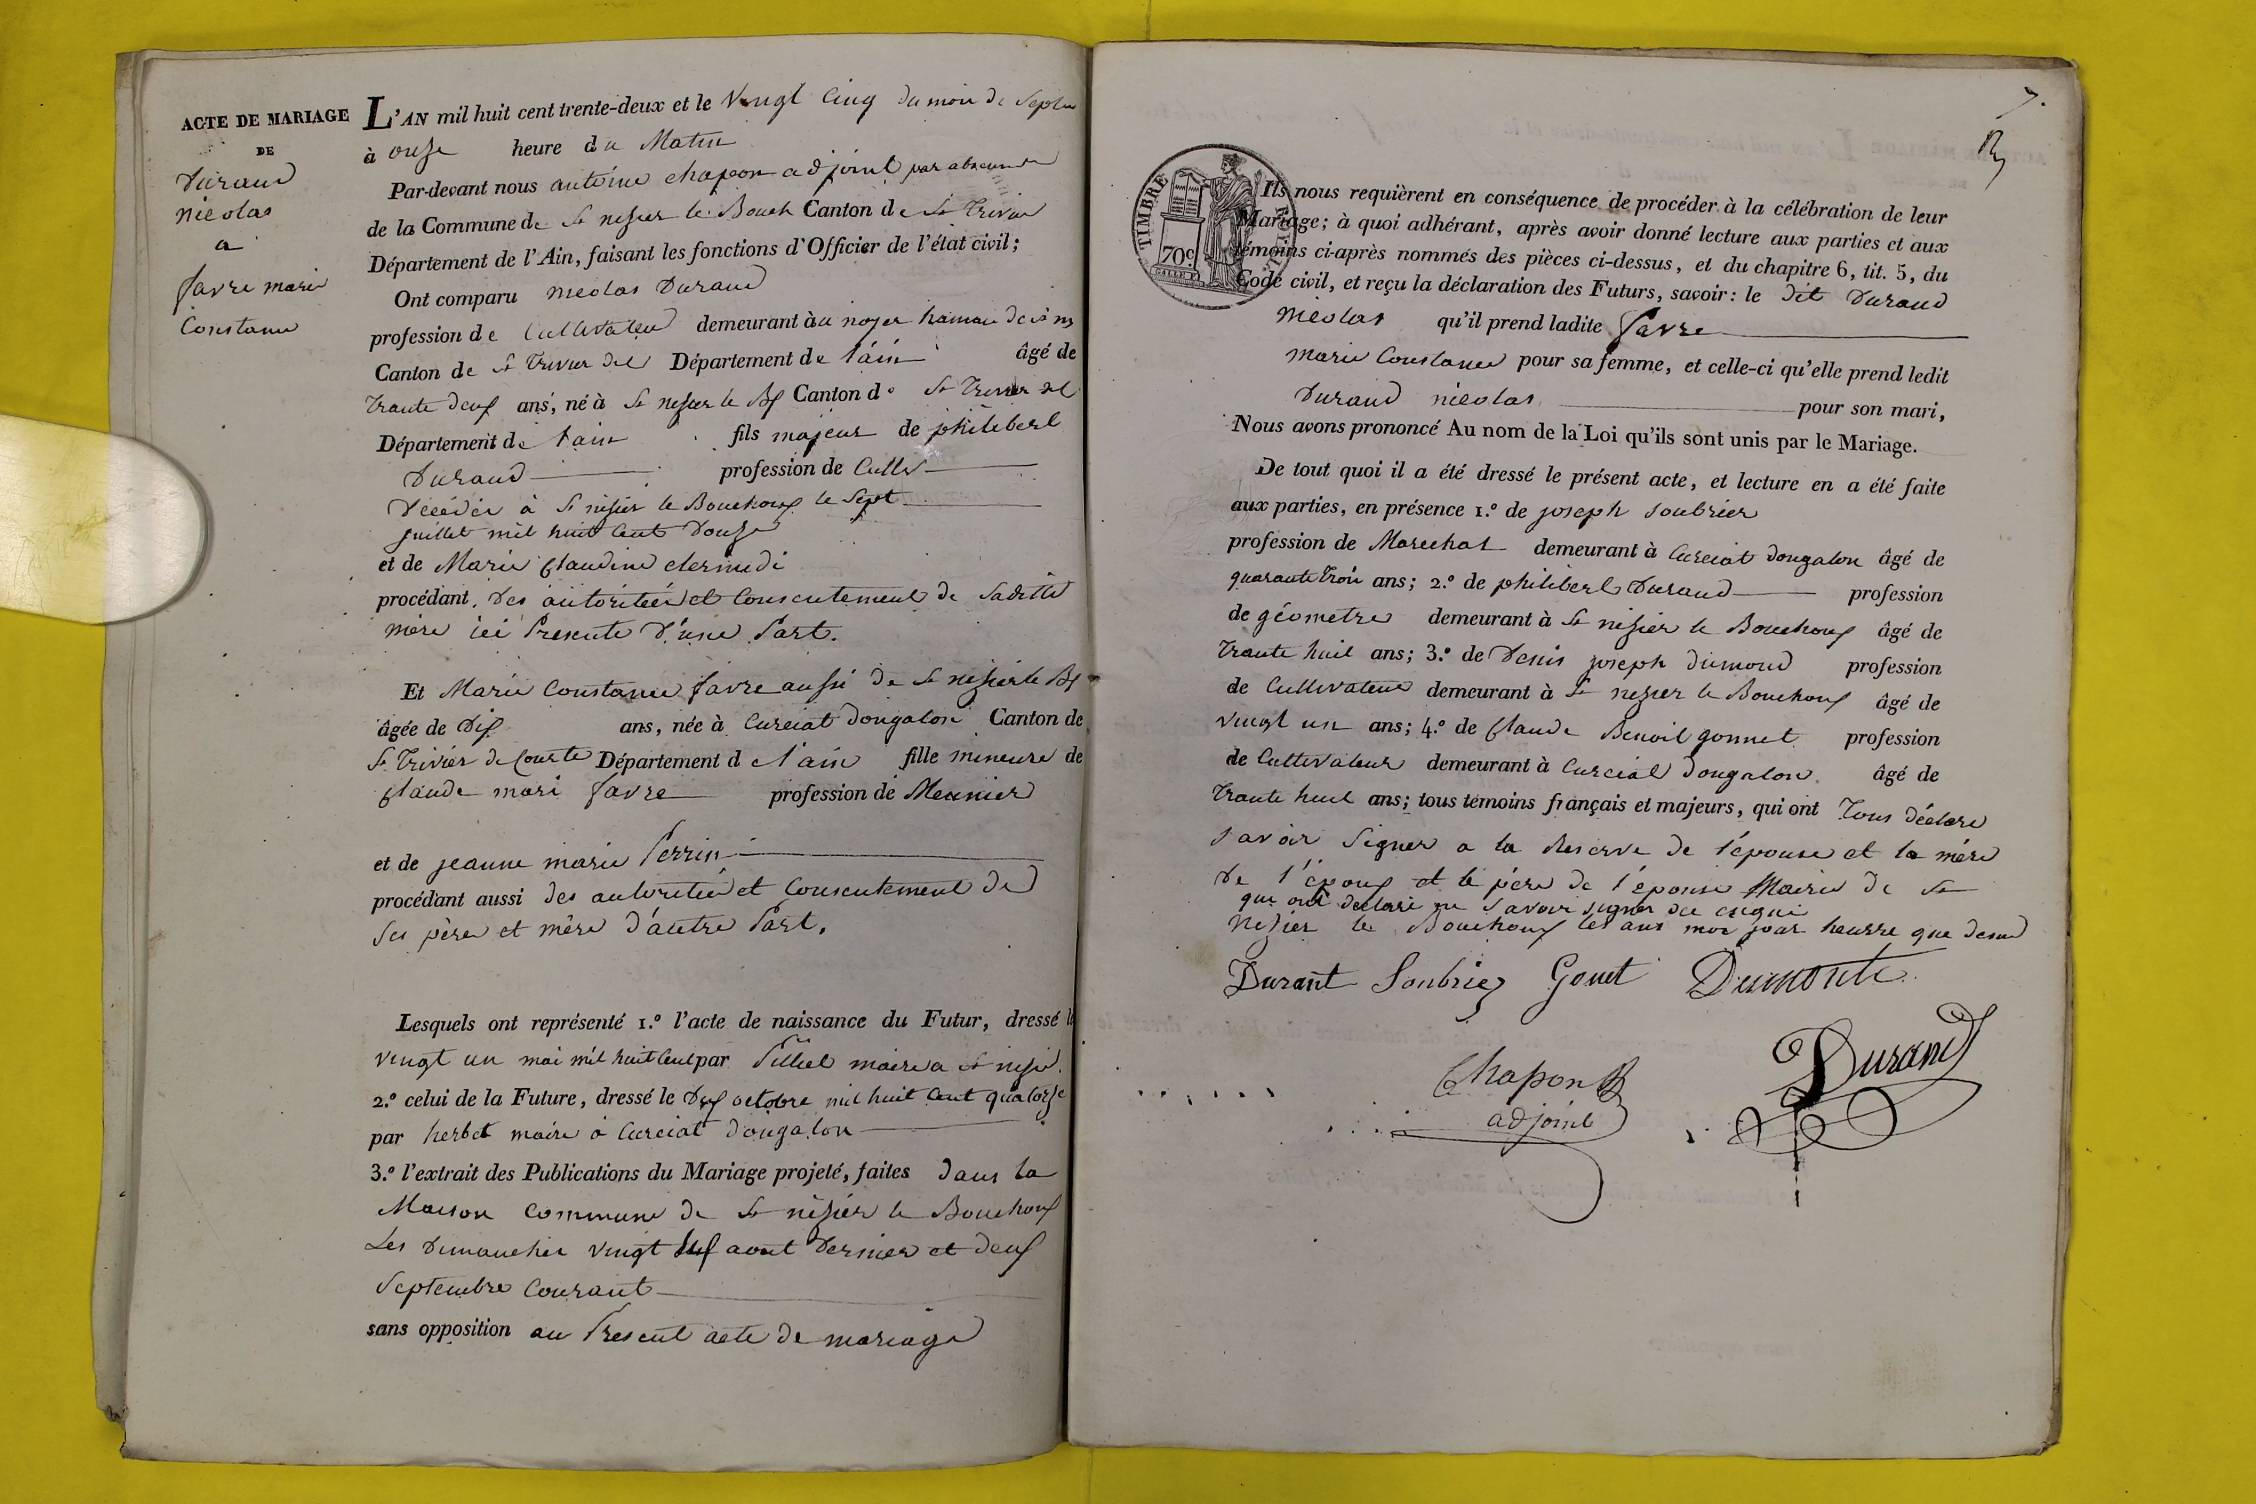 ACTE DE MARIAGE
DE
Durand
nicolas
a
favre marie
Constance
L'AN mil huit cent trente-deux et le vingt Cinq du moi de Septem
à onze heure du Matin
Par-devant nous antoine chapon adjoint par absence
de la Commune de St nisier le Bouch Canton de St Trivier
Département de l'Ain, faisant les fonctions d'Officier de l'état civil;
Ont comparu nicolas Durand
profession de Cultivateur demeurant à noyer hamau
Canton de St Trivier del Département de l'ain âgé de
trante deux ans, né à St nisier le Bx Canton de St Trivier del
Département de l'ain fils majeur de philibert
Durand profession de Cultr
Décédé à St nisier le Bouchoux le Sept
juillet mil huit Cent Douze
et de Marie Claudine clermidi
procédant des autoritée et Consentement de Saditte
mère ici Presente D'une Part.
Et Marie Constance favre aussi de St nisier le Bx
âgée de Dix ans, née à Curciat Dongalon Canton de
St Trivier de Courte Département de l'ain fille mineure de
Claude mari favre profession de Meunier
et de jeanne marie Perrin
procédant aussi des autoritée et Consentement de
Ses père et mère d'autre Part.
Lesquels ont représenté 1.º l'acte de naissance du Futur, dressé le
vingt un mai mil huit Cent par Pilliel maire a St nisie
2.º celui de la Future, dressé le Dix octobre mil huit Cent quatorze
par herbet maire a Curciat Dongalon
3.º l'extrait des Publications du Mariage projeté, faites dans la
Maison Commune de St nisier le Bouchoux
Les Dimanches vingt Six aout Dernier et deux
Septembre Courant
sans opposition au Present acte de mariage
7.
TIMBRE ROYAL
70c
Ils nous requièrent en conséquence de procéder à la célébration de leur
Mariage; à quoi adhérant, après avoir donné lecture aux parties et aux
témoins ci-après nommés des pièces ci-dessus, et du chapitre 6, tit. 5, du
Code civil, et reçu la déclaration des Futurs, savoir: le dit Durand
nicolas qu'il prend ladite favre
marie Constance pour sa femme, et celle-ci qu'elle prend ledit
Durand nicolas pour son mari,
Nous avons prononcé Au nom de la Loi qu'ils sont unis par le Mariage.
De tout quoi il a été dressé le présent acte, et lecture en a été faite
aux parties, en présence 1.º de joseph Soubrier
profession de Marechal demeurant à Curciat dongalon âgé de
quarante troi ans; 2.º de philibert Durand profession
de géometre demeurant à St nisier le Bouchoux âgé de
trante huit ans; 3.º de Denis joseph dumond profession
de Cultivateur demeurant à St nisier le Bouchoux âgé de
vingt un ans; 4.º de Claude Benoit gonnet profession
de Cultivateur demeurant à Curcial Dongalon. âgé de
trante huit ans; tous témoins français et majeurs, qui ont Tous déclaré
savoir Signer a la Reserve de l'épouse et la mère
De l'époux et le père de l'epouse Mairie de St
que ont declaré ne Savoir signer de enquis
nisier le Bouchoux les ans moi jour heurre que desus
Durant Soubrier Gonet Dumonte
Chapon Durand
adjoint